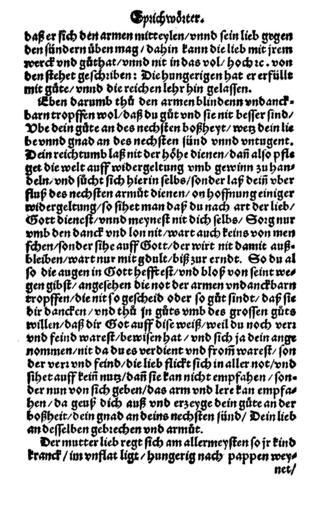 Sprichwörter.
daß er sich den armen mitteylen/vnnd sein lieb gegen
den sündern üben mag/dahin kann die lieb mit jrem
werck vnd gůthat/vnnd nit in das vol/hoch ꝛc. von
den stehet geschriben: Die hungerigen hat er erfüllt
mit gůte/vnnd die reichen lehr hin gelassen.
Eben darumb thů den armen blindenn vndanck-
barn tropffen wol/daß du gůt vnd sie nit besser sind/
Vbe dein gůte an des nechsten boßheyt/weg dein lie
be vnnd gnad an des nechsten sünd vnnd vntugent.
Dein reichtumb laß nit der höhe dienen/dañ also pfle
get die welt auff widergeltung vmb gewinn zu han-
deln/vnd sůcht sich hierin selbs/sonder laß dein über
fluß des nechsten armůt dienen/on hoffnung einiger
widergeltung/so sihet man daß du nach art der lieb/
Gott dienest/vnnd meynest nit dich selbs/Sorg nur
vmb den danck vnd lon nit/wart auch keins von men
schen/sonder sihe auff Gott/der wirt nit damit auß-
bleiben/wart nur mit gdult/biß zur erndt. So du al
so die augen in Gott hefftest/vnd bloß von seint we-
gen gibst/angesehen die not der armen vndanckbarn
tropffen/die nit so gescheid oder so gůt sindt/daß sie
dir dancken/vnd thů jn gůts vmb des grossen gůts
willen/daß dir Got auff dise weiß/weil du noch veri
vnd feind warest/bewisen hat/vnd sich ja dein ange
nommen/nit da du es verdient vnd from̃ warest/son
der veri vnd feind/die lieb flickt sich in aller not/vnd
sihet auff kein nutz/dañ sie kan nicht empfahen/son-
der nun von sich geben/das arm vnd lere kan empfa-
hen/da geuß dich auß vnd erzeyge dein gůte an der
boßheit/dein gnad an deins nechsten sünd/Dein lieb
an desselben gebrechen vnd armůt.
Der mutter lieb regt sich am allermeysten so jr kind
kranck/im vnflat ligt/hungerig nach pappen wey-
net/